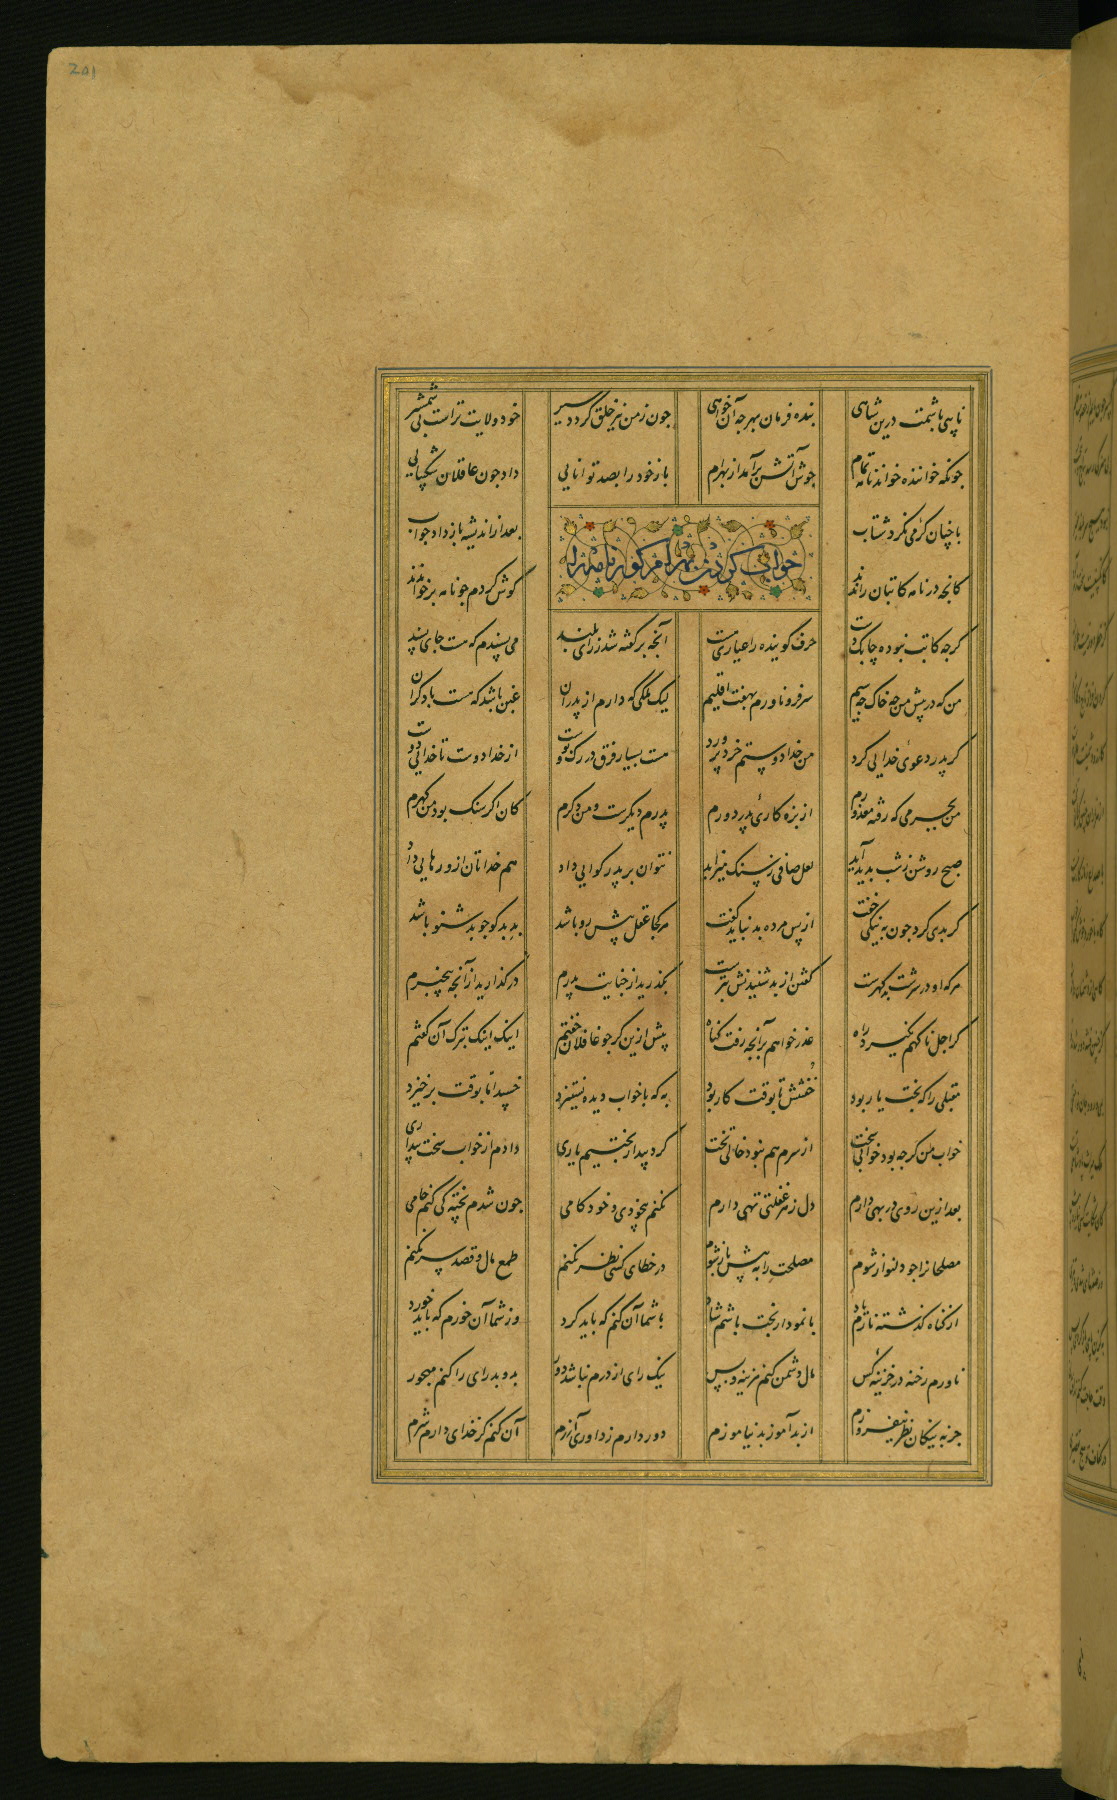 201
تا پی باشمت درین شاهی بنده فرمان بهر چه آن خواهی چون ز من نیز خلق گردد سیر خود ولایت تراست بی شمشیر
چونکه خواننده خواند نامه تمام جوش آتش برآمد از بهرام باز خود را بصد توانایی داد چون عاقلان شکیبایی
با چنان گرمی نکرد شتاب بعد از اندیشه باز داد جواب
جواب کردن بهرام گور نامه را
کانچه در نامه کاتبان راندند گوش کردم چو نامه بر خواندند
گرچه کاتب نبوده چابک دست حرف گوینده را عیاری هست آنچه بر گفته شد ز رای بلند می پسندم که هست جای پسند
من که در پیش من چه خاک چه سیم سر فرو ناورم بهفت اقلیم لیک ملکی که دارم از پدران غبن باشد که هست با دگران
گر پدر دعوی خدایی کرد من خدا دوستم خرد پرورد هست بسیار فرق در رگ و پوست از خدا دوست تا خدایی دوست
من بجرمی که رفته معذورم از بزه کاری پدر دورم پدرم دیگرست و من دگرم کان اگر سنگ بود من گهرم
صبح روشن ز شب پدید آید لعل صافی ز سنگ میزاید نتوان بر پدر گوایی داد هم خداتان ازو رهایی داد
گر بدی کرد چون به نیکی خفت از پس مرده بد نباید گفت هر کجا عقل پیش رو باشد بد بد گو چو بد شنو باشد
هر که او در سرشت بد گهرست گفتن از بد شنیدنش بترست بگذرید از جنایت پدرم در گذارید از آنچه بیخبرم
گر اجل ناگهم نگیرد راه عذر خواهم بر آنچه رفت گناه پیش ازین گر چو غافلان خفتم اینک اینک بترک آن گفتم
مقبلی را که بخت یار بود خفتنش تا بوقت کار بود به که با خواب دیده نستیزد خسپد اما بوقت بر خیزد
خواب من گرچه بود خوابی سخت از سرم هم نبود خالی بخت کرد بیدار بختیم یاری دادم از خواب سخت بیداری
بعد ازین روی در بهی دارم دل ز هر غفلتی تهی دارم نکنم بیخودی و خودکامی چون شدم پخته کی کنم خامی
مصلحانرا چو دلنواز شوم مصلحت را به پیش باز شوم در خطای کسی نظر نکنم طمع مال و قصد سر نکنم
از گناه گذشته نارم یاد با نمودار بخت باشم شاد با شما آن کنم که باید کرد وز شما آن خورم که باید خورد
ناورم رخنه در خزینه کس مال دشمن کنم هزینه و بس نیک رای از درم نباشد دور بد و بد رای را کنم مهجور
جز به نیکان نظر نیفروزم از بدآموز بد نیاموزم دور دارم ز داوری آزرم آن کنم کز خدای دارم شرم